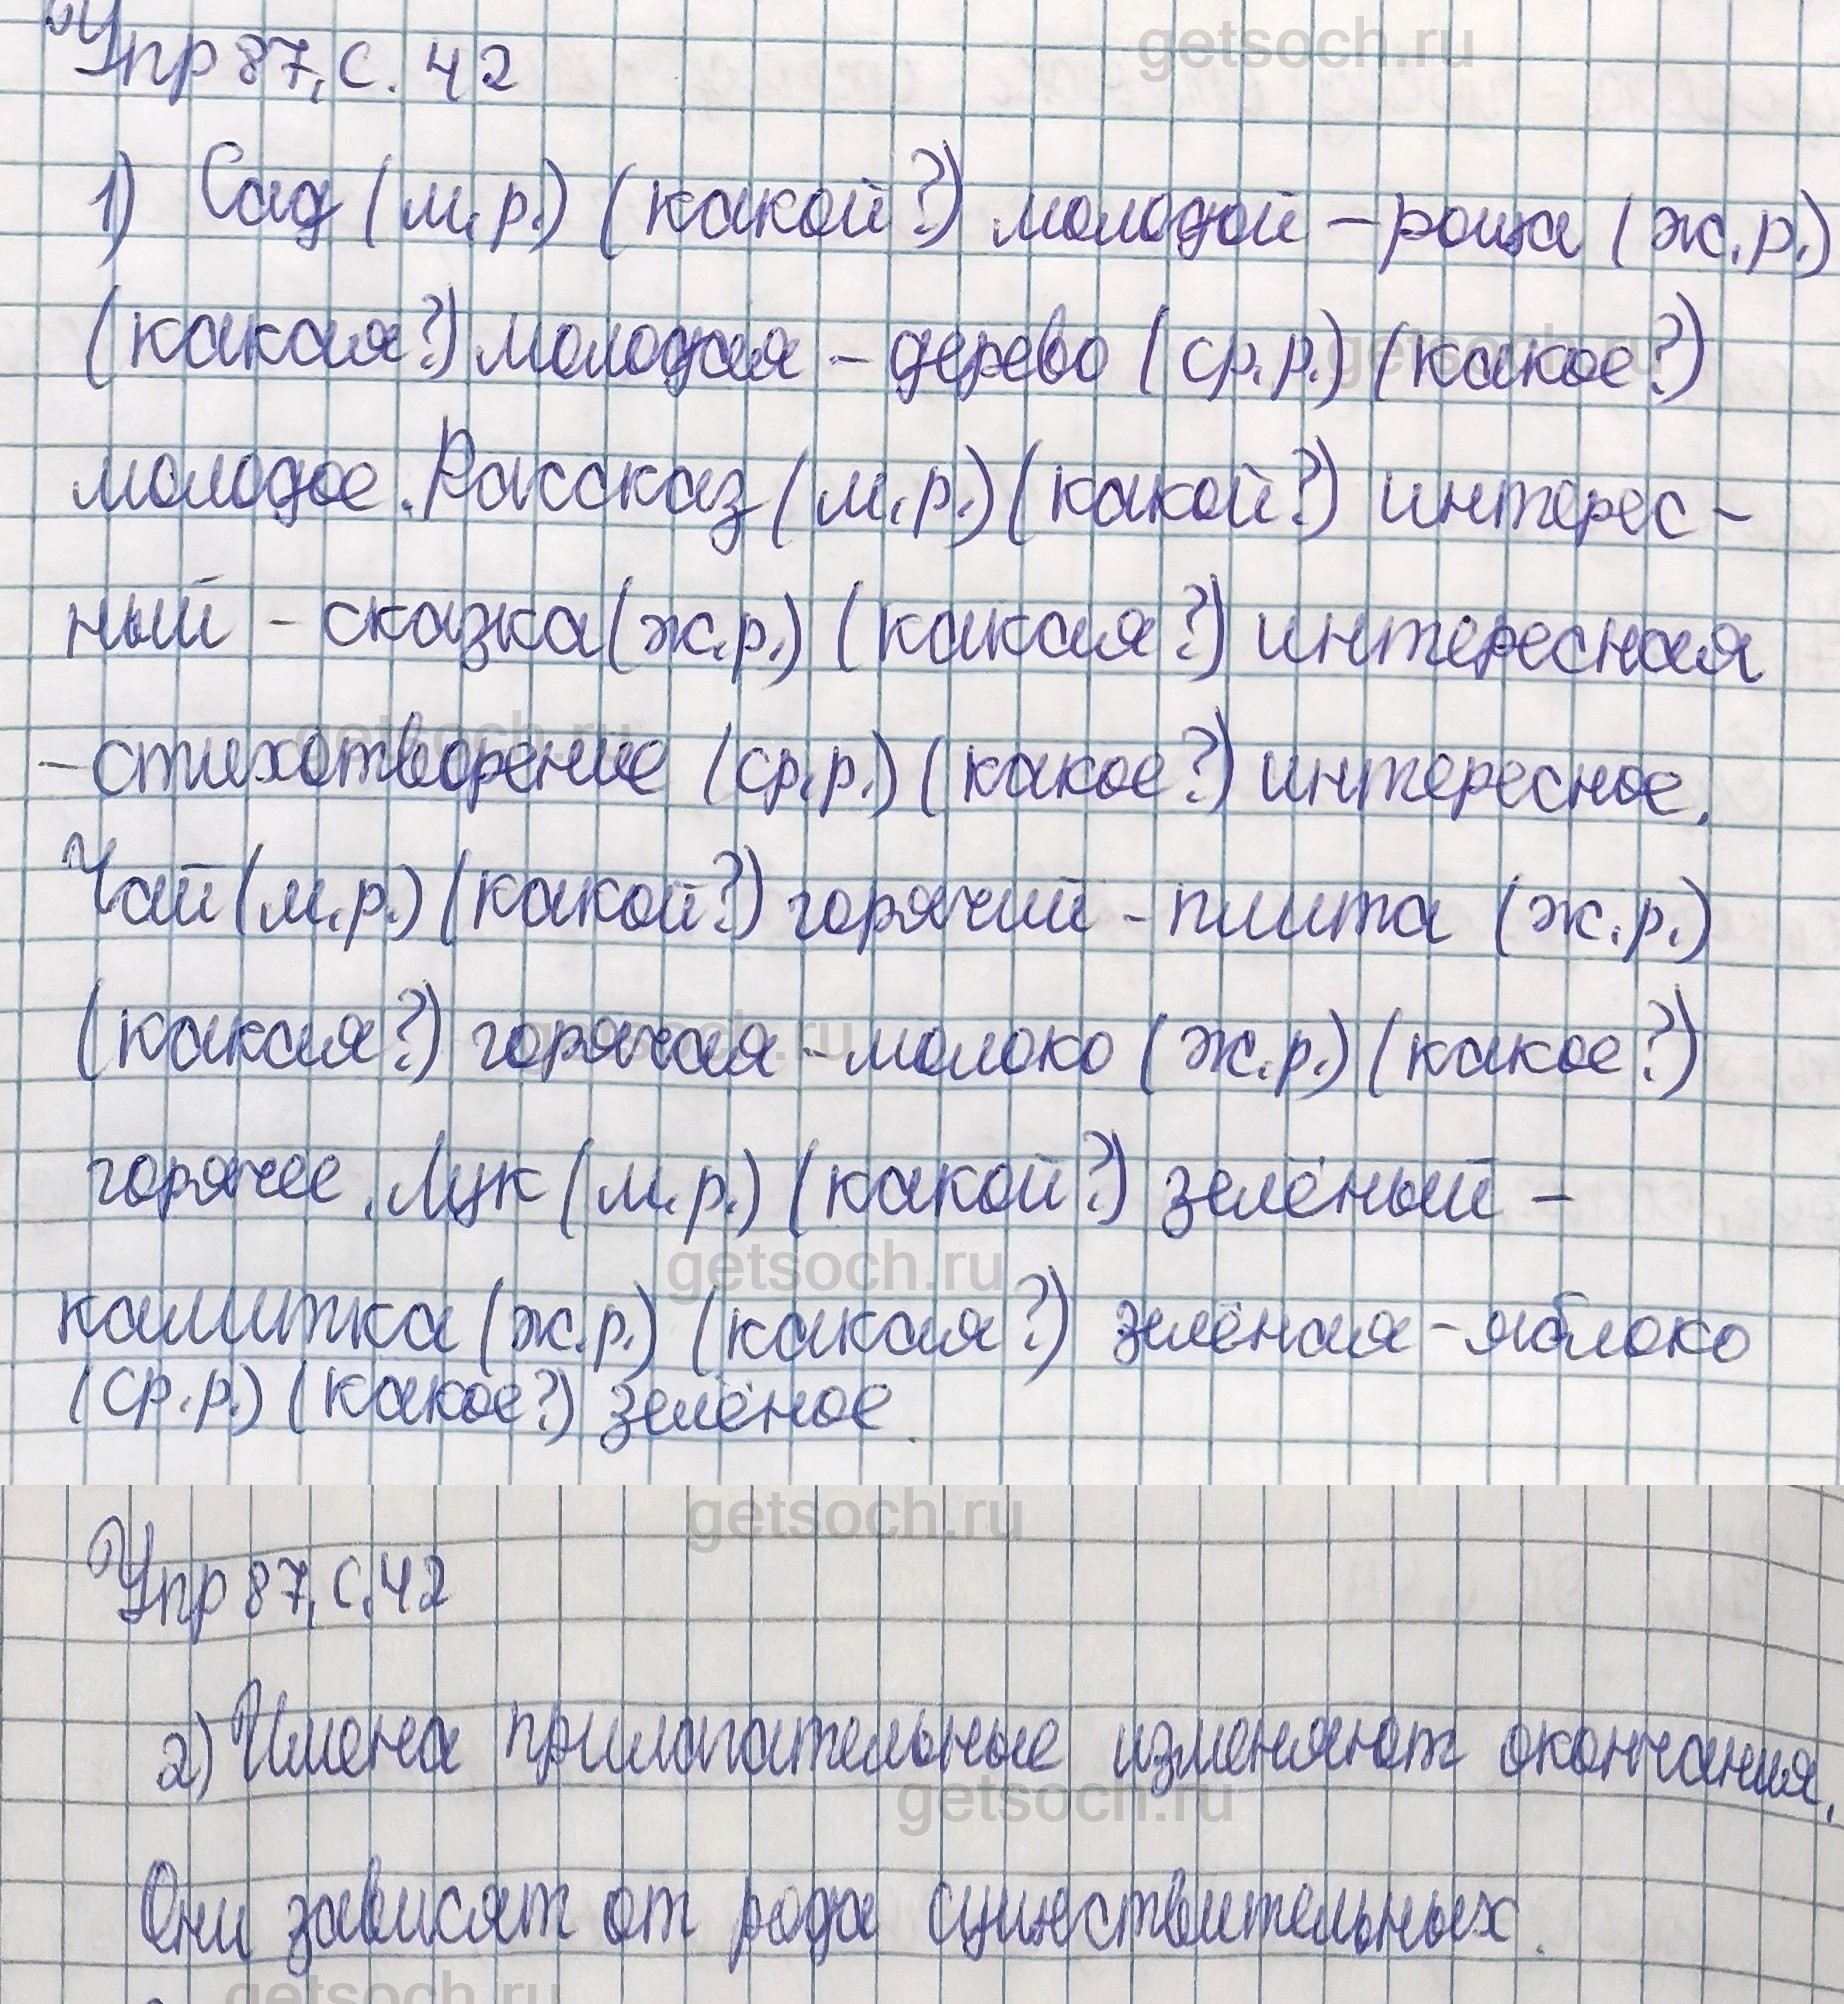 getsoch.ru
Упр 87, с. 42
1) Сад (м.р.) (какой?) молодой – роща (ж.р.)
(какая?) молодая – дерево (ср.р.) (какое?)
getsoch.ru
молодое. Рассказ (м.р.) (какой?) интерес-
ный – сказка (ж.р.) (какая?) интересная
getsoch.ru
– стихотворение (ср.р.) (какое?) интересное.
Чай (м.р.) (какой?) горячий – плита (ж.р.)
getsoch.ru
(какая?) горячая – молоко (ж.р.) (какое?)
горячее. Лук (м.р.) (какой?) зелёный –
getsoch.ru
калитка (ж.р.) (какая?) зелёная – яблоко
(ср.р.) (какое?) зелёное.
getsoch.ru
Упр 87, с. 42
2) Имена прилагательные изменяют окончания.
getsoch.ru
Они зависят от рода существительных.
getsoch.ru